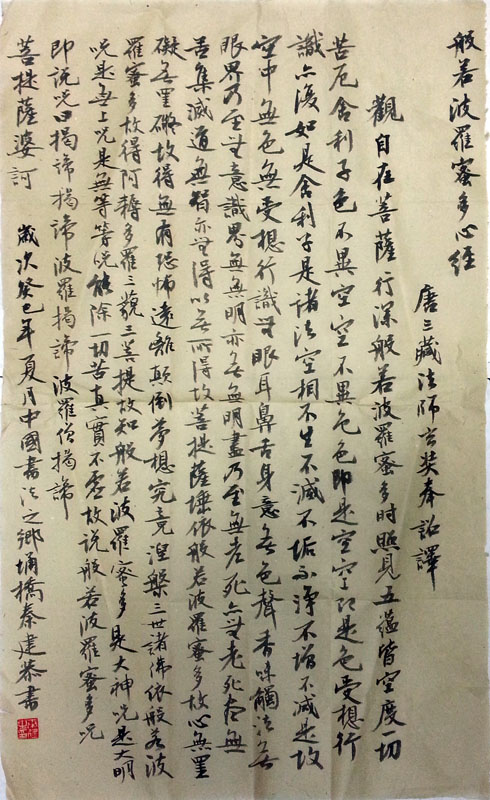 般若波羅蜜多心經
唐三藏法師玄奘奉詔譯
觀自在菩薩行深般若波羅蜜多時照見五蘊皆空度一切
苦厄舍利子色不異空空不異色色即是空空即是色受想行
識亦復如是舍利子是諸法空相不生不滅不垢不淨不增不減是故
空中無色無受想行識無眼耳鼻舌身意無色聲香味觸法無
眼界乃至無意識界無無明亦無無明盡乃至無老死亦無老死盡無
苦集滅道無智亦無得以無所得故菩提薩埵依般若波羅蜜多故心無罣
礙無罣礙故得無有恐怖遠離顛倒夢想究竟涅槃三世諸佛依般若波
羅蜜多故得阿耨多羅三藐三菩提故知般若波羅蜜多是大神呪是大明
呪是無上呪是無等等呪能除切苦真實不虛故說般若波羅蜜多呪
即說呪曰揭諦揭諦波羅揭諦波羅僧揭諦
菩提薩婆訶 歲次癸巳年夏月中國書法之鄉埇橋秦建恭書